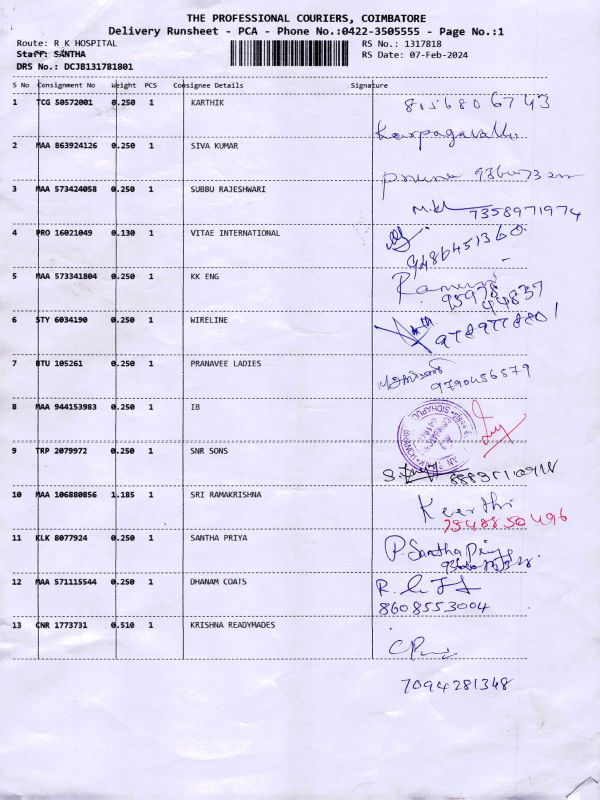 THE PROFESSIONAL COURIERS, COIMBATORE
Delivery Runsheet - PCA - Phone No.:0422-3505555 - Page No.:1
Route: R K HOSPITAL RS No.: 1317818
Staff: SANTHA RS Date: 07-Feb-2024
DRS No.: DCJB131781801
S No Consignment No Weight PCS Consignee Details Signature
1 TCG 50572001 0.250 1 KARTHIK 8156806743
Karpagavalli
2 MAA 863924126 0.250 1 SIVA KUMAR
3 MAA 573424058 0.250 1 SUBBU RAJESHWARI
7358971974
4 PRO 16021049 0.130 1 VITAE INTERNATIONAL
9486451360
5 MAA 573341804 0.250 1 KK ENG
95978
44837
6 STY 6034190 0.250 1 WIRELINE
9789778801
7 BTU 105261 0.250 1 PRANAVEE LADIES
9790456579
8 MAA 944153983 0.250 1 IB
9 TRP 2079972 0.250 1 SNR SONS
10 MAA 106880856 1.185 1 SRI RAMAKRISHNA Keerthi
7548850496
11 KLK 8077924 0.250 1 SANTHA PRIYA P. Santha Priya
12 MAA 571115544 0.250 1 DHANAM COATS
8608553004
13 CNR 1773731 0.510 1 KRISHNA READYMADES
7094281348